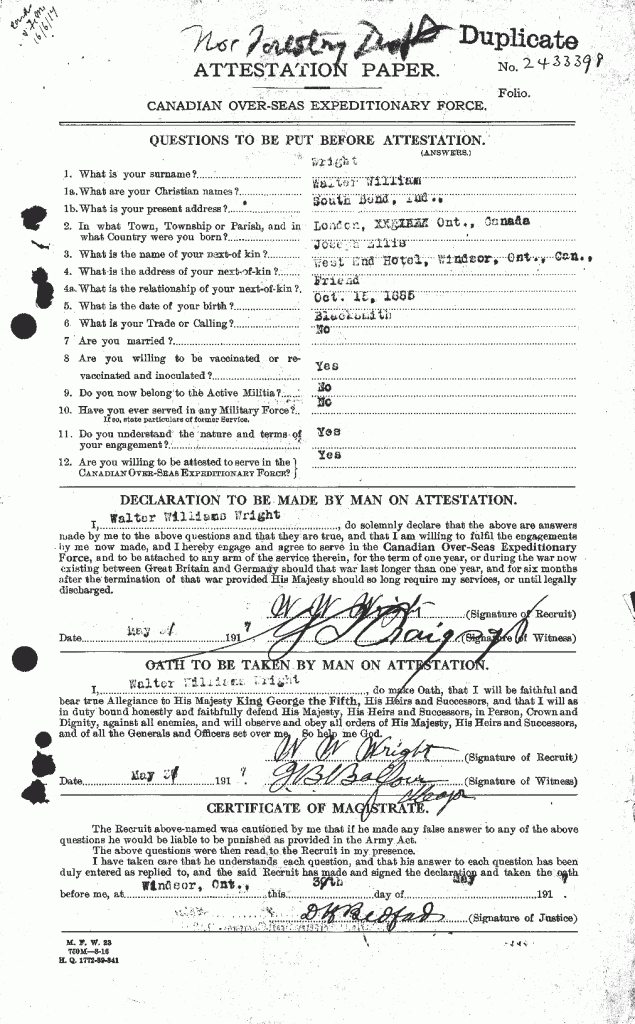 16/6/17
Nor Forestry Draft
Duplicate
ATTESTATION PAPER.
No. 2433398
Folio.
CANADIAN OVER-SEAS EXPEDITIONARY FORCE.
QUESTIONS TO BE PUT BEFORE ATTESTATION.
(ANSWERS.)
1. What is your surname? Wright
1a. What are your Christian names? Walter William
1b. What is your present address? South Bend, Ind.,
2. In what Town, Township or Parish, and in what Country were you born? London, Ont., Canada
3. What is the name of your next-of kin? Joseph Ellis
4. What is the address of your next-of-kin? West End Hotel, Windsor, Ont., Can.,
4a. What is the relationship of your next-of-kin? Friend
5. What is the date of your birth? Oct. 15, 1885
6. What is your Trade or Calling? Blacksmith
7 Are you married? No
8 Are you willing to be vaccinated or re-
vaccinated and inoculated? Yes
9. Do you now belong to the Active Militia? No
10. Have you ever served in any Military Force? No
If so, state particulars of former Service.
11. Do you understand the nature and terms of
your engagement? Yes
12. Are you willing to be attested to serve in the
CANADIAN OVER-SEAS EXPEDITIONARY FORCE? Yes
DECLARATION TO BE MADE BY MAN ON ATTESTATION.
I, Walter Williams Wright, do solemnly declare that the above are answers
made by me to the above questions and that they are true, and that I am willing to fulfil the engagements
by me now made, and I hereby engage and agree to serve in the Canadian Over-Seas Expeditionary
Force, and to be attached to any arm of the service therein, for the term of one year, or during the war now
existing between Great Britain and Germany should that war last longer than one year, and for six months
after the termination of that war provided His Majesty should so long require my services, or until legally
discharged.
W W Wright (Signature of Recruit)
Date May 31 1917 Craig (Signature of Witness)
OATH TO BE TAKEN BY MAN ON ATTESTATION.
I, Walter Williams Wright, do make Oath, that I will be faithful and
bear true Allegiance to His Majesty King George the Fifth, His Heirs and Successors, and that I will as
in duty bound honestly and faithfully defend His Majesty, His Heirs and Successors, in Person, Crown and
Dignity, against all enemies, and will observe and obey all orders of His Majesty, His Heirs and Successors,
and of all the Generals and Officers set over me. So help me God.
W W Wright (Signature of Recruit)
Date May 31 1917 (Signature of Witness)
Major
CERTIFICATE OF MAGISTRATE.
The Recruit above-named was cautioned by me that if he made any false answer to any of the above
questions he would be liable to be punished as provided in the Army Act.
The above questions were then read to the Recruit in my presence.
I have taken care that he understands each question, and that his answer to each question has been
duly entered as replied to, and the said Recruit has made and signed the declaration and taken the oath
before me, at Windsor, Ont., this 30th day of May 1917
(Signature of Justice)
M. F. W. 23
750M—8-16
H. Q. 1772-39-841